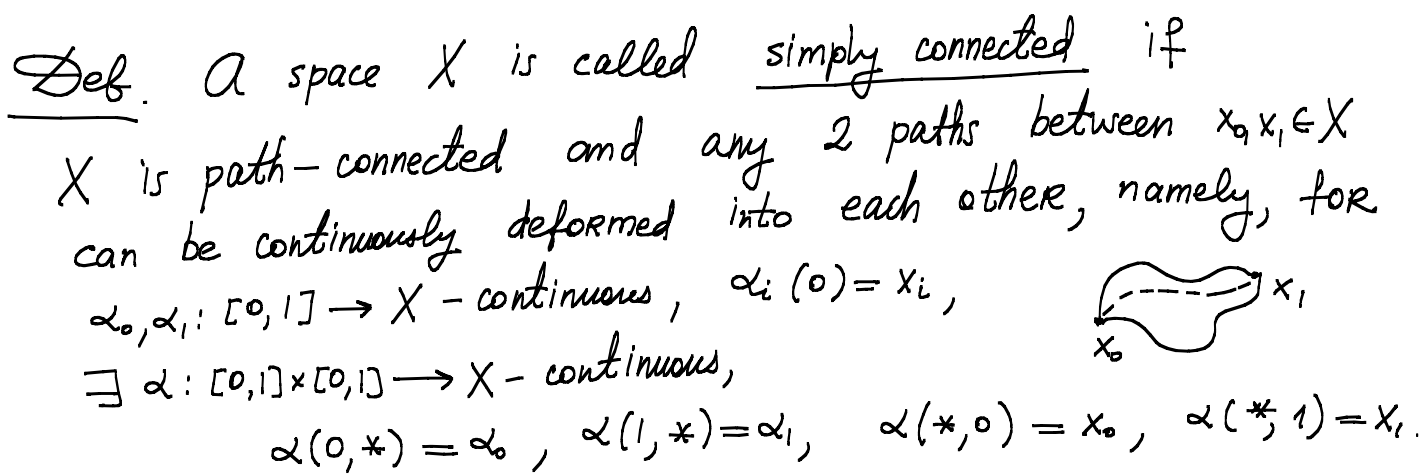 Def. A space X is called simply connected if
X is path-connected and any 2 paths between x₀, x₁ ∈ X
can be continuously deformed into each other, namely, for
α₀, α₁: [0,1] → X - continuous, αᵢ(0) = xᵢ,
∃ α: [0,1]×[0,1] → X - continuous,
α(0,*) = α₀, α(1,*) = α₁, α(*,0) = x₀, α(*,1) = x₁.
x₁
x₀